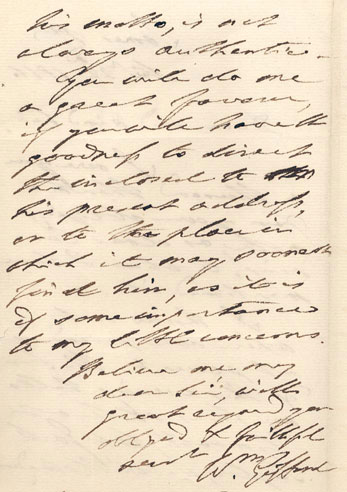 his motto, is not
always authentic –
You will do me
a great favour,
if you will have the
goodness to direct
the inclosed to
his present address,
or to the place in
which it may soonest
find him, as it is
of some importance
to my little concerns.
Believe me my
dear Sir, with
great regard your
obliged & faithful
servt
Wm Gifford